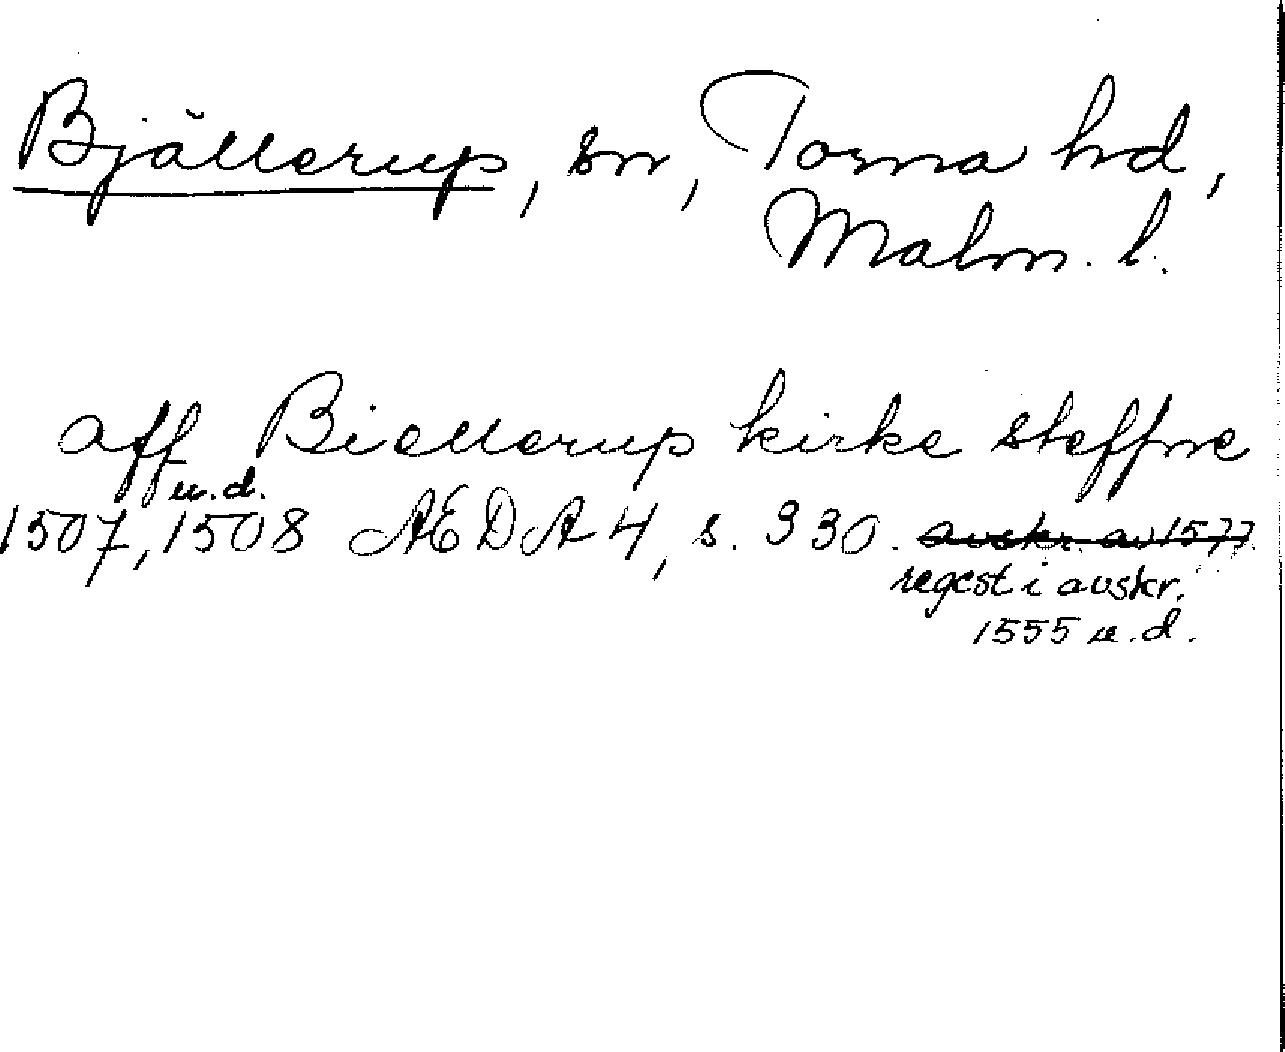 Bjällerup, sn, Torna hd,
Malm. l.
aff Biellerup kirke steffne
u.d.
1507, 1508 ÆDA 4, s. 330. avskr. av 1577.
regest i avskr.
1555 u.d.